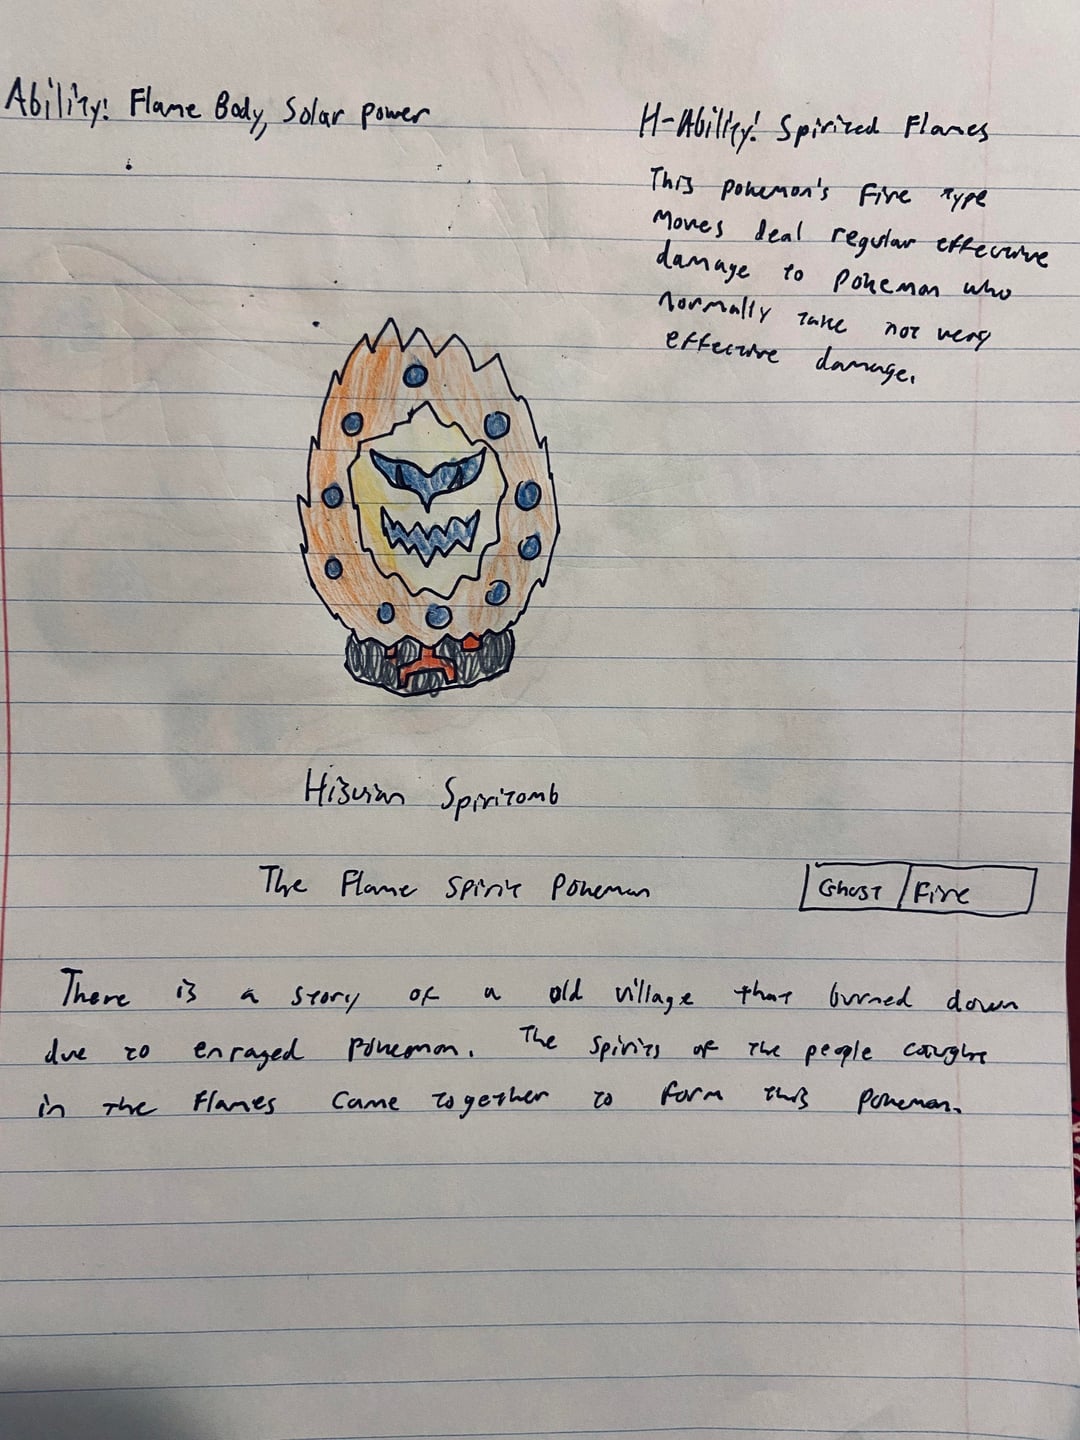 Ability: Flame Body, Solar power
H-Ability: Spirited Flames
This pokemon's Fire type
moves deal regular effective
damage to Pokemon who
normally take not very
effective damage.
Hisuian Spiritomb
The Flame Spirit Pokemon
Ghost Fire
There is a story of a old village that burned down
due to enraged Pokemon. The spirits of the people caught
in the flames came together to form this Pokemon.